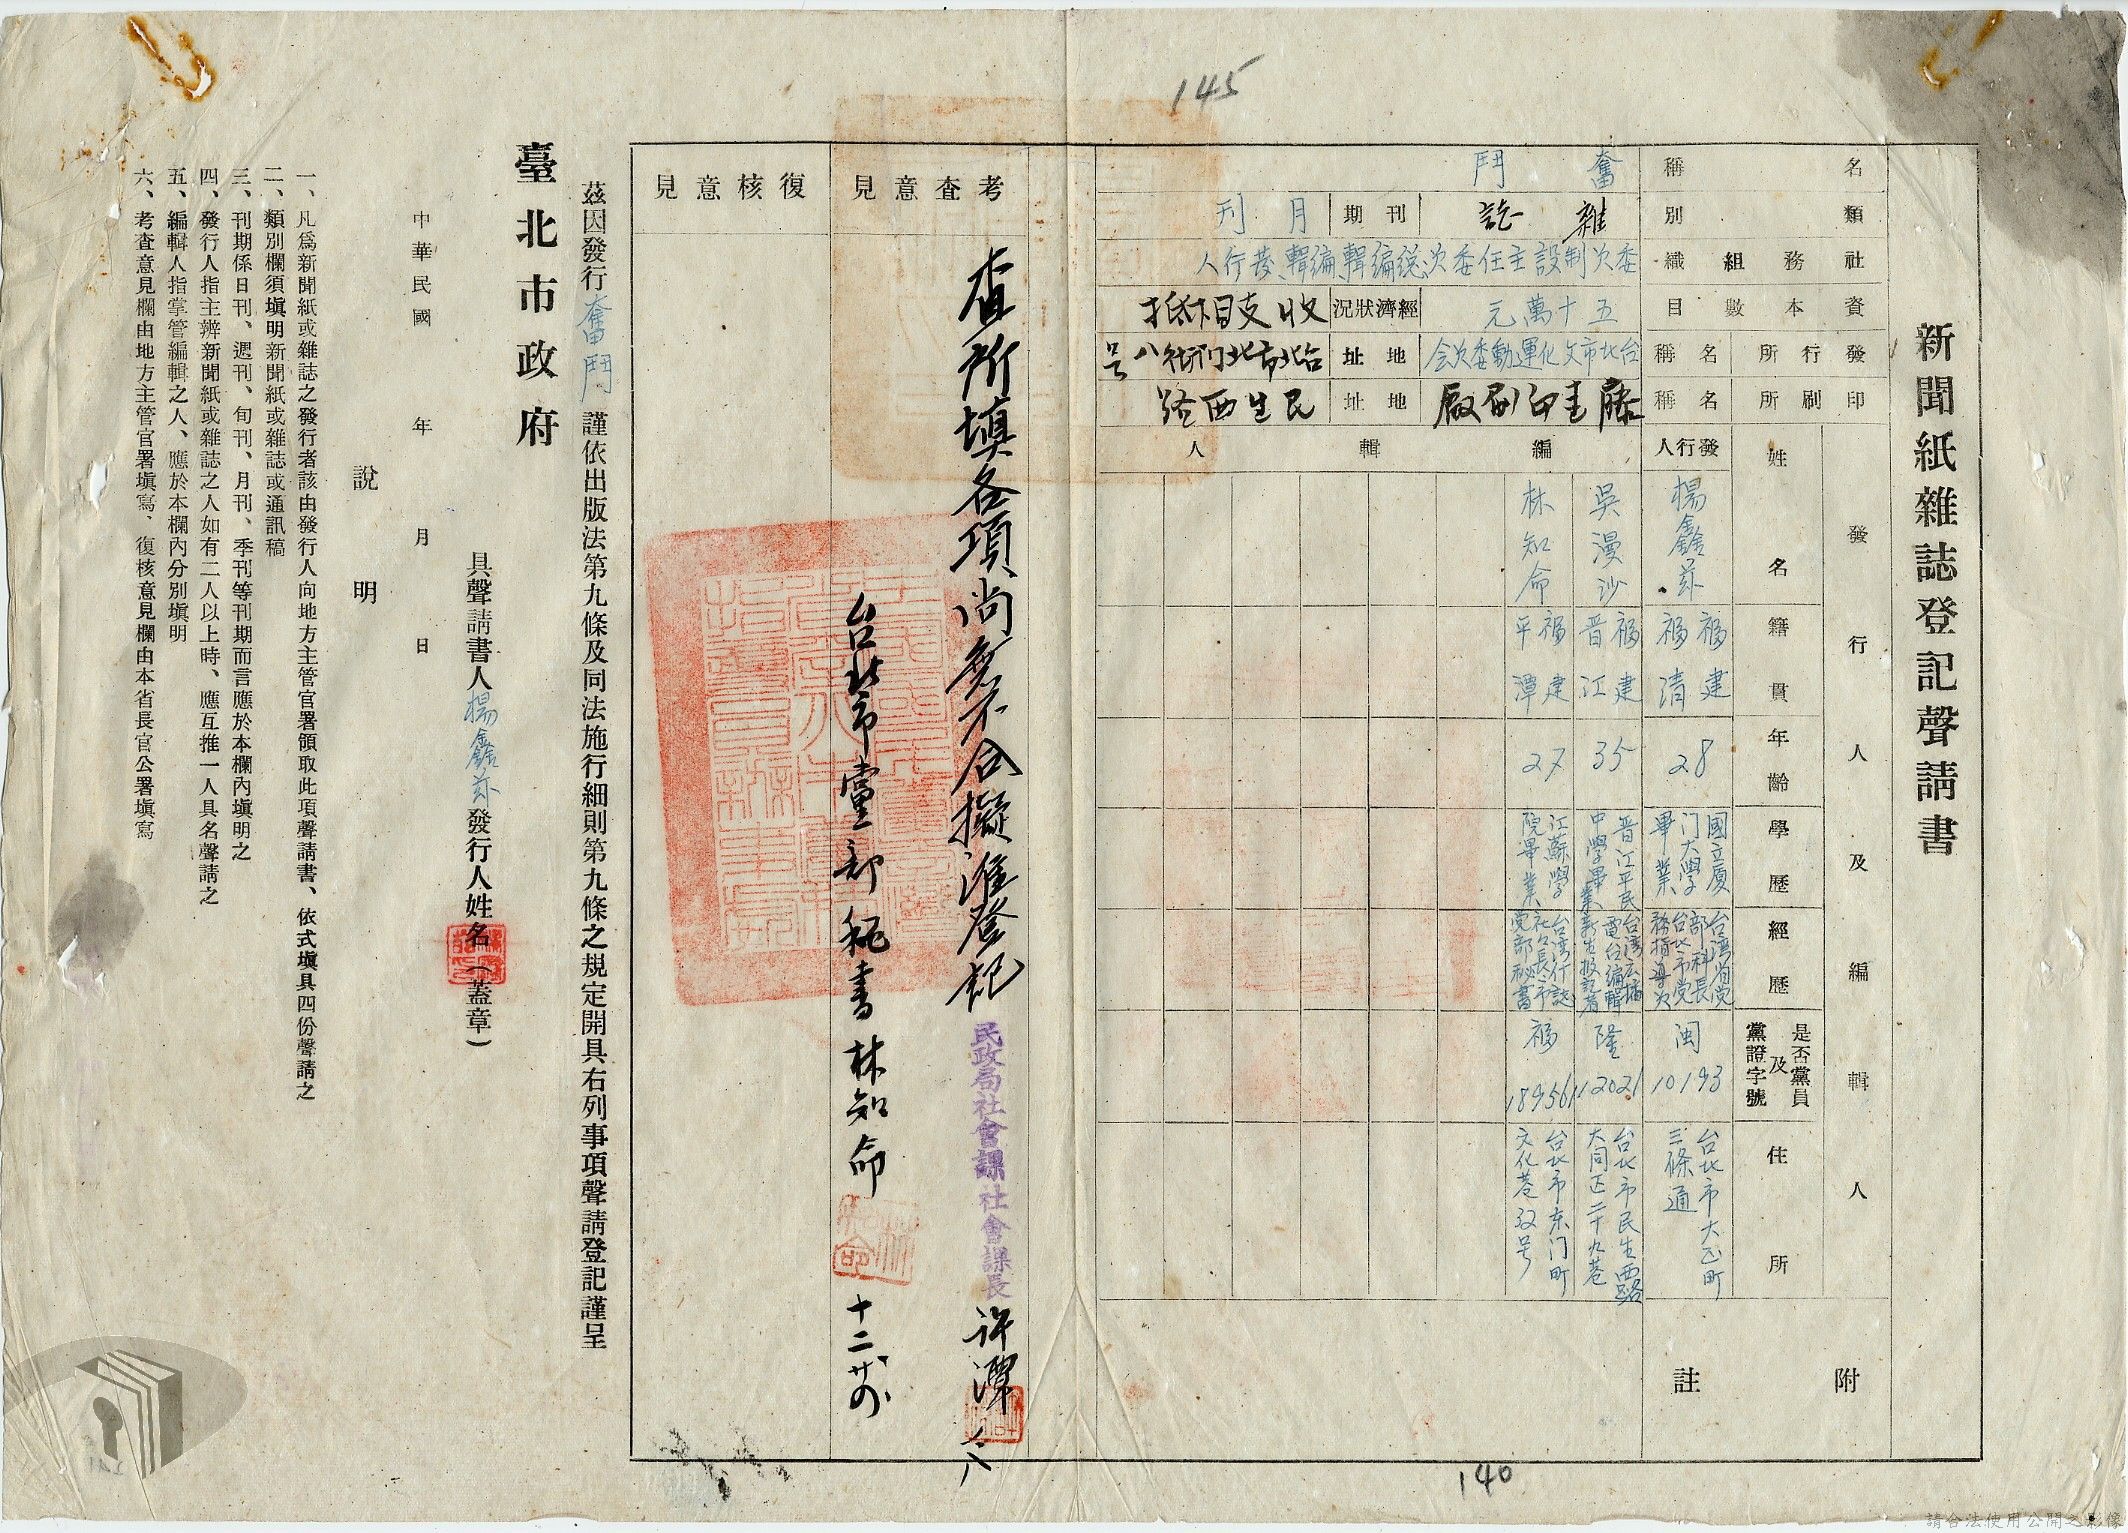 145
新聞紙雜誌登記聲請書
名稱 奮鬥
類別 雜誌 刊期 月刊
社務組織 委次制設主任委次總編輯編輯發行人
資本數目 五十萬元 經濟狀況 收支相抵
發行所名稱 台北市文化運動委次会 地址 台北市北门街八号
印刷所名稱 藤圭印刷厰 地址 民生西路
發行人及編輯人
姓名 籍貫 年齡 學歷 經歷 是否黨員及黨證字號 住所
發行人 楊鑫茲 福建福清 28 國立厦门大學畢業 台湾省党部科長台北市党務指導次 闽10193 台北市大正町三條通
編輯人
吳漫沙 福建晋江 35 晋江平民中學畢業 台湾广播電台編輯新生报記者 隆112021 台北市民生西路大同正二十九巷
林知命 福建平潭 27 江蘇學院畢業 台湾什誌社社長市党部秘書 福189561 台北市东门町文化巷33号
附註
考查意見
查所填各項尚無不合擬准登記
民政局社會課社會課長 許潭
台北市黨部秘書林知命 十二
復核意見
茲因發行奮鬥謹依出版法第九條及同法施行細則第九條之規定開具右列事項聲請登記謹呈
臺北市政府
具聲請書人楊鑫茲發行人姓名(蓋章)
中華民國 年 月 日
說明
一、凡爲新聞紙或雜誌之發行者該由發行人向地方主管官署領取此項聲請書、依式塡具四份聲請之
二、類別欄須塡明新聞紙或雜誌或通訊稿
三、刊期係日刊、週刊、旬刊、月刊、季刊等刊期而言應於本欄內塡明之
四、發行人指主辦新聞紙或雜誌之人如有二人以上時、應互推一人具名聲請之
五、編輯人指掌管編輯之人、應於本欄內分別塡明
六、考查意見欄由地方主管官署塡寫、復核意見欄由本省長官公署塡寫
140
請合法使用公開之影像